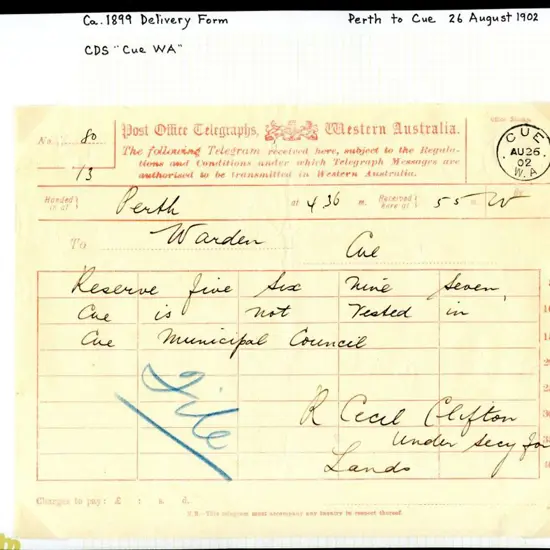 Ca. 1899 Delivery Form
Perth to Cue 26 August 1902
CDS "Cue WA"
No. 80
13
Post Office Telegraphs, Western Australia.
The following Telegram received here, subject to the Regula-
tions and Conditions under which Telegraph Messages are
authorised to be transmitted in Western Australia.
CUE
AU 26
02
W.A
Handed in at Perth at 4 36 m. Received here at 5 5
By
To Warden Cue
Reserve five six nine seven,
Cue is not vested in
Cue Municipal Council
File
R Cecil Clifton
under secy for
Lands
Charges to pay: £ : s. d.
N.B.—This telegram must accompany any inquiry in respect thereof.